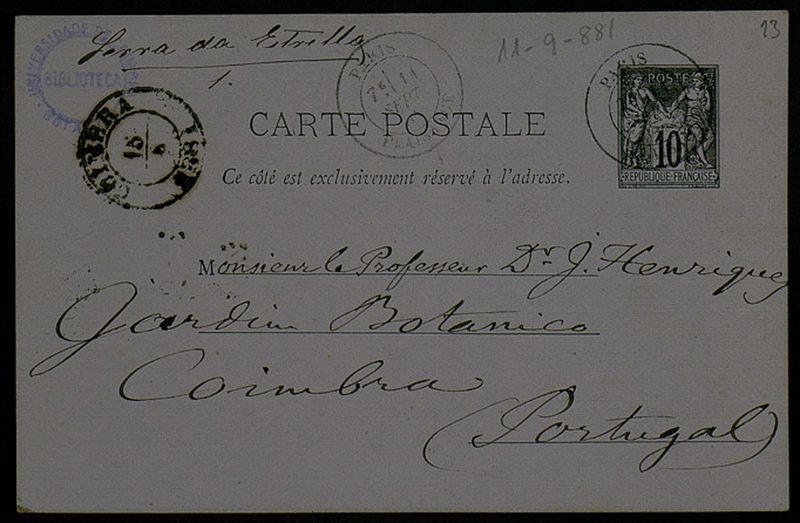 Serra da Estrella
1.
11-9-881
13
UNIVERSIDADE
BIBLIOTECA
PARIS
7E 11
SEPT
PARIS
POSTE
10
RÉPUBLIQUE FRANÇAISE
COIMBRA
15
CARTE POSTALE
Ce côté est exclusivement réservé à l'adresse.
Monsieur le Professeur Dr J. Henriques
Jardim Botanico
Coimbra
(Portugal)